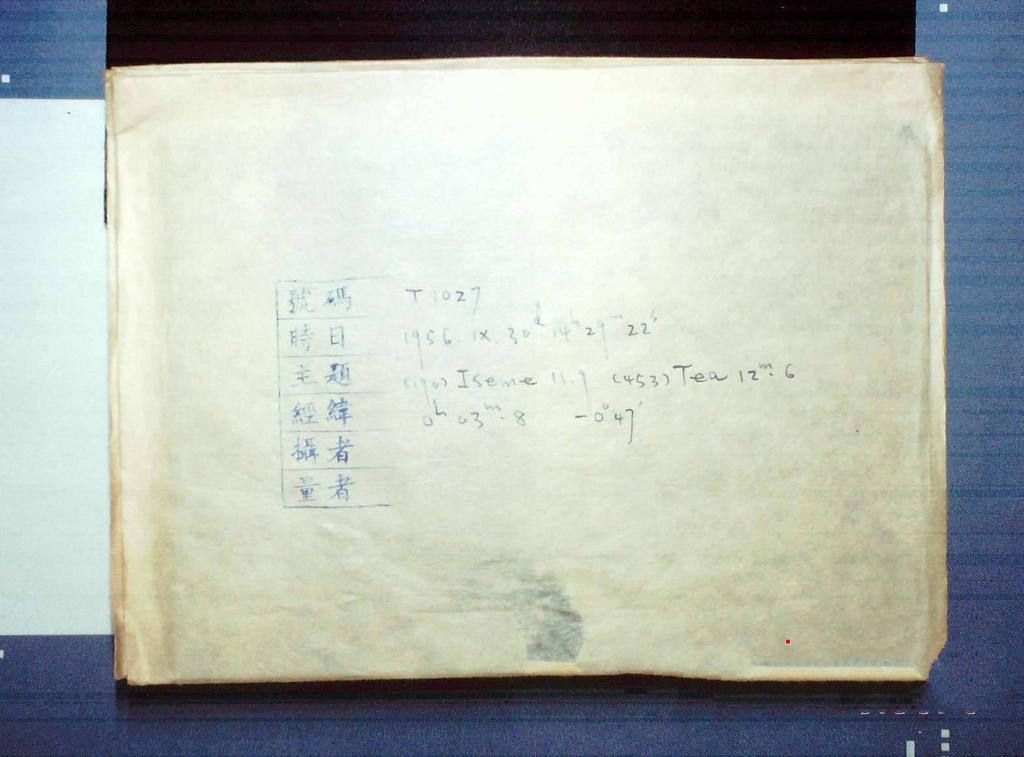 號碼 T 1027
時日 1956. IX. 30ᵈ 14ʰ 29ᵐ 22ˢ
主題 (190) Iseme 11.9 (453) Tea 12ᵐ.6
經緯 0ʰ 03ᵐ.8 -0°47'
攝者
量者